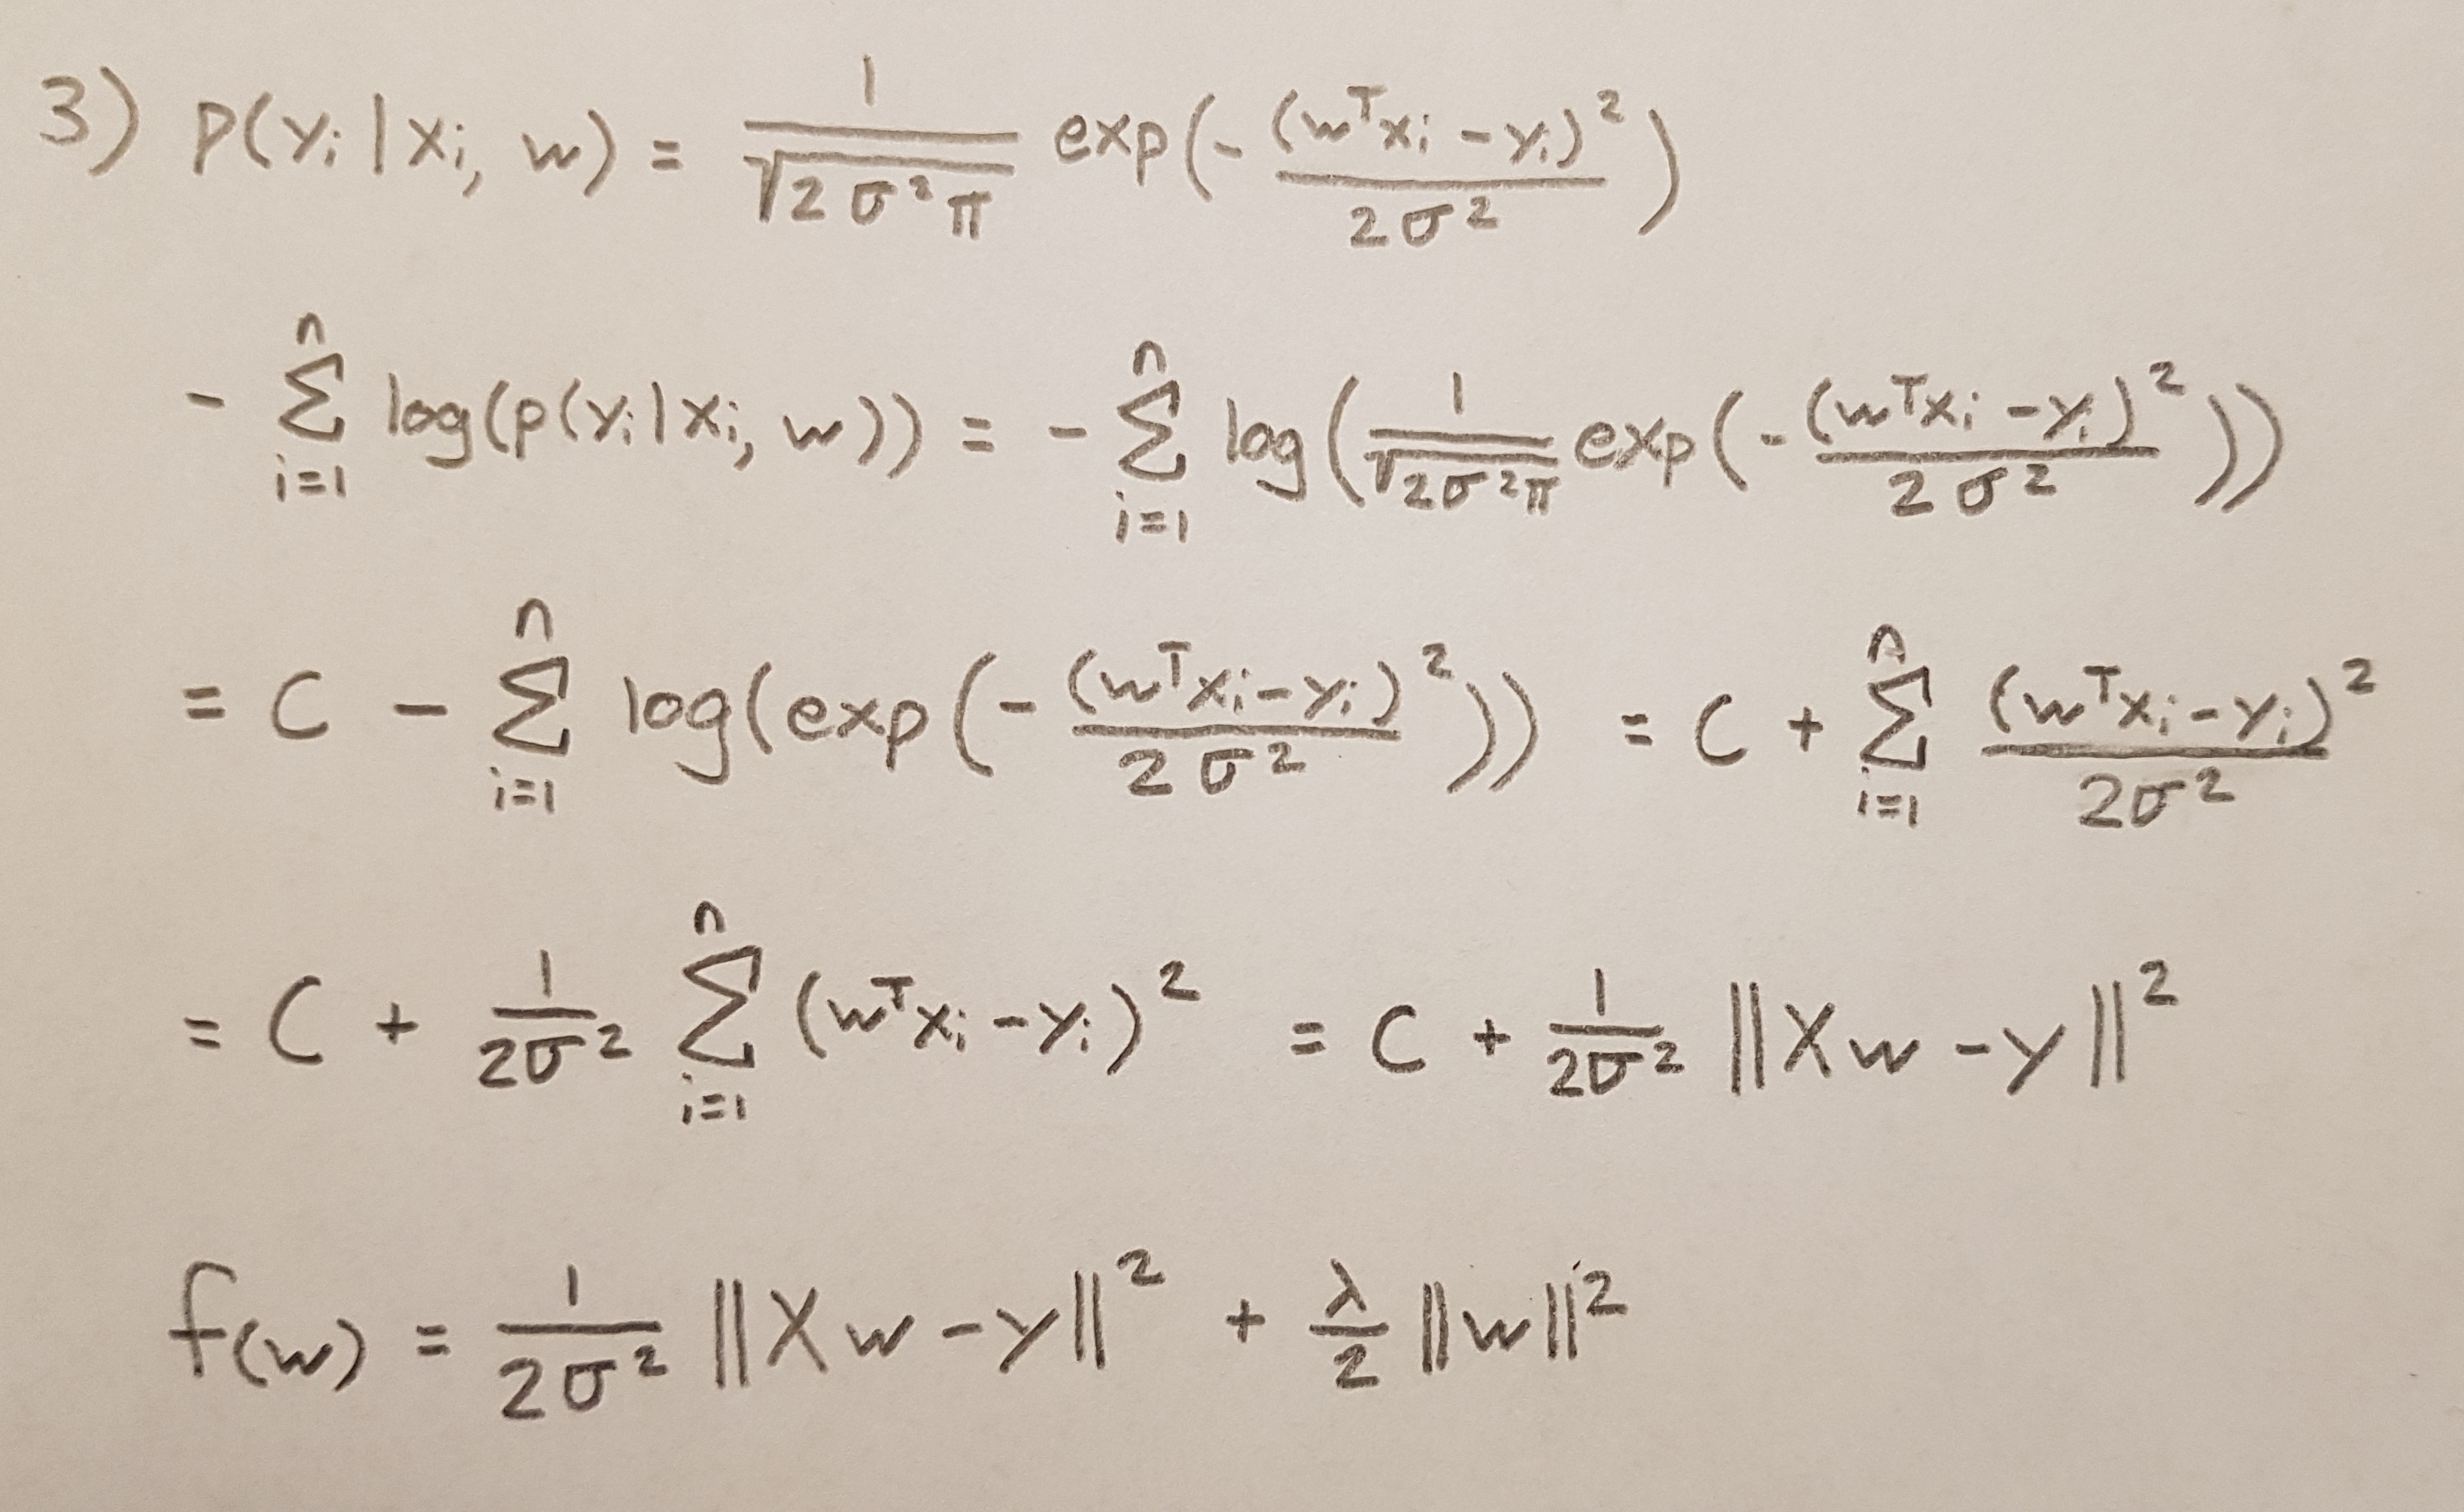 3) p(yᵢ | xᵢ, w) = 1/√(2σ²π) exp(-(wᵀxᵢ - yᵢ)²/(2σ²))
- Σᵢ₌₁ⁿ log(p(yᵢ | xᵢ, w)) = - Σᵢ₌₁ⁿ log(1/√(2σ²π) exp(-(wᵀxᵢ - yᵢ)²/(2σ²)))
= C - Σᵢ₌₁ⁿ log(exp(-(wᵀxᵢ - yᵢ)²/(2σ²))) = C + Σᵢ₌₁ⁿ (wᵀxᵢ - yᵢ)²/(2σ²)
= C + 1/(2σ²) Σᵢ₌₁ⁿ (wᵀxᵢ - yᵢ)² = C + 1/(2σ²) ||Xw - y||²
f(w) = 1/(2σ²) ||Xw - y||² + λ/2 ||w||²